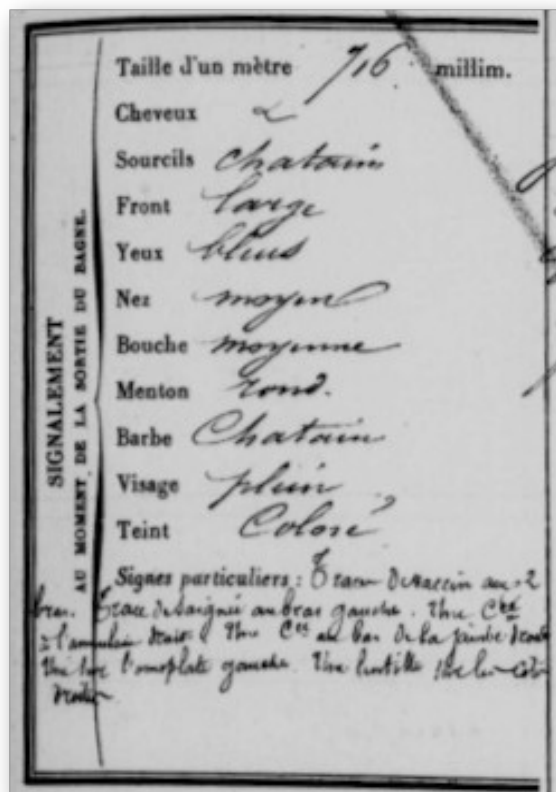 SIGNALEMENT
AU MOMENT DE LA SORTIE DU BAGNE.
Taille d'un mètre 716 millim.
Cheveux
Sourcils chatains
Front large
Yeux bleus
Nez moyen
Bouche moyenne
Menton rond.
Barbe Chatain
Visage plein
Teint Coloré
Signes particuliers : Trace de vaccin aux 2
bras. Trace de saignée au bras gauche. Une Cce
à l'annulaire droit. Une Cce au bas de la jambe droite
Une sur l'omoplate gauche. Une lentille sur le côté
droit